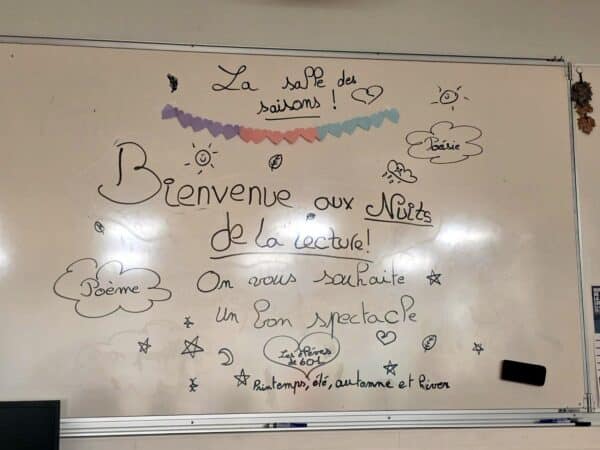 La salle des
saisons !
Poésie
Bienvenue aux Nuits
de la lecture !
On vous souhaite
Poème
un bon spectacle
Les élèves
de 601
Printemps, été, automne et hiver